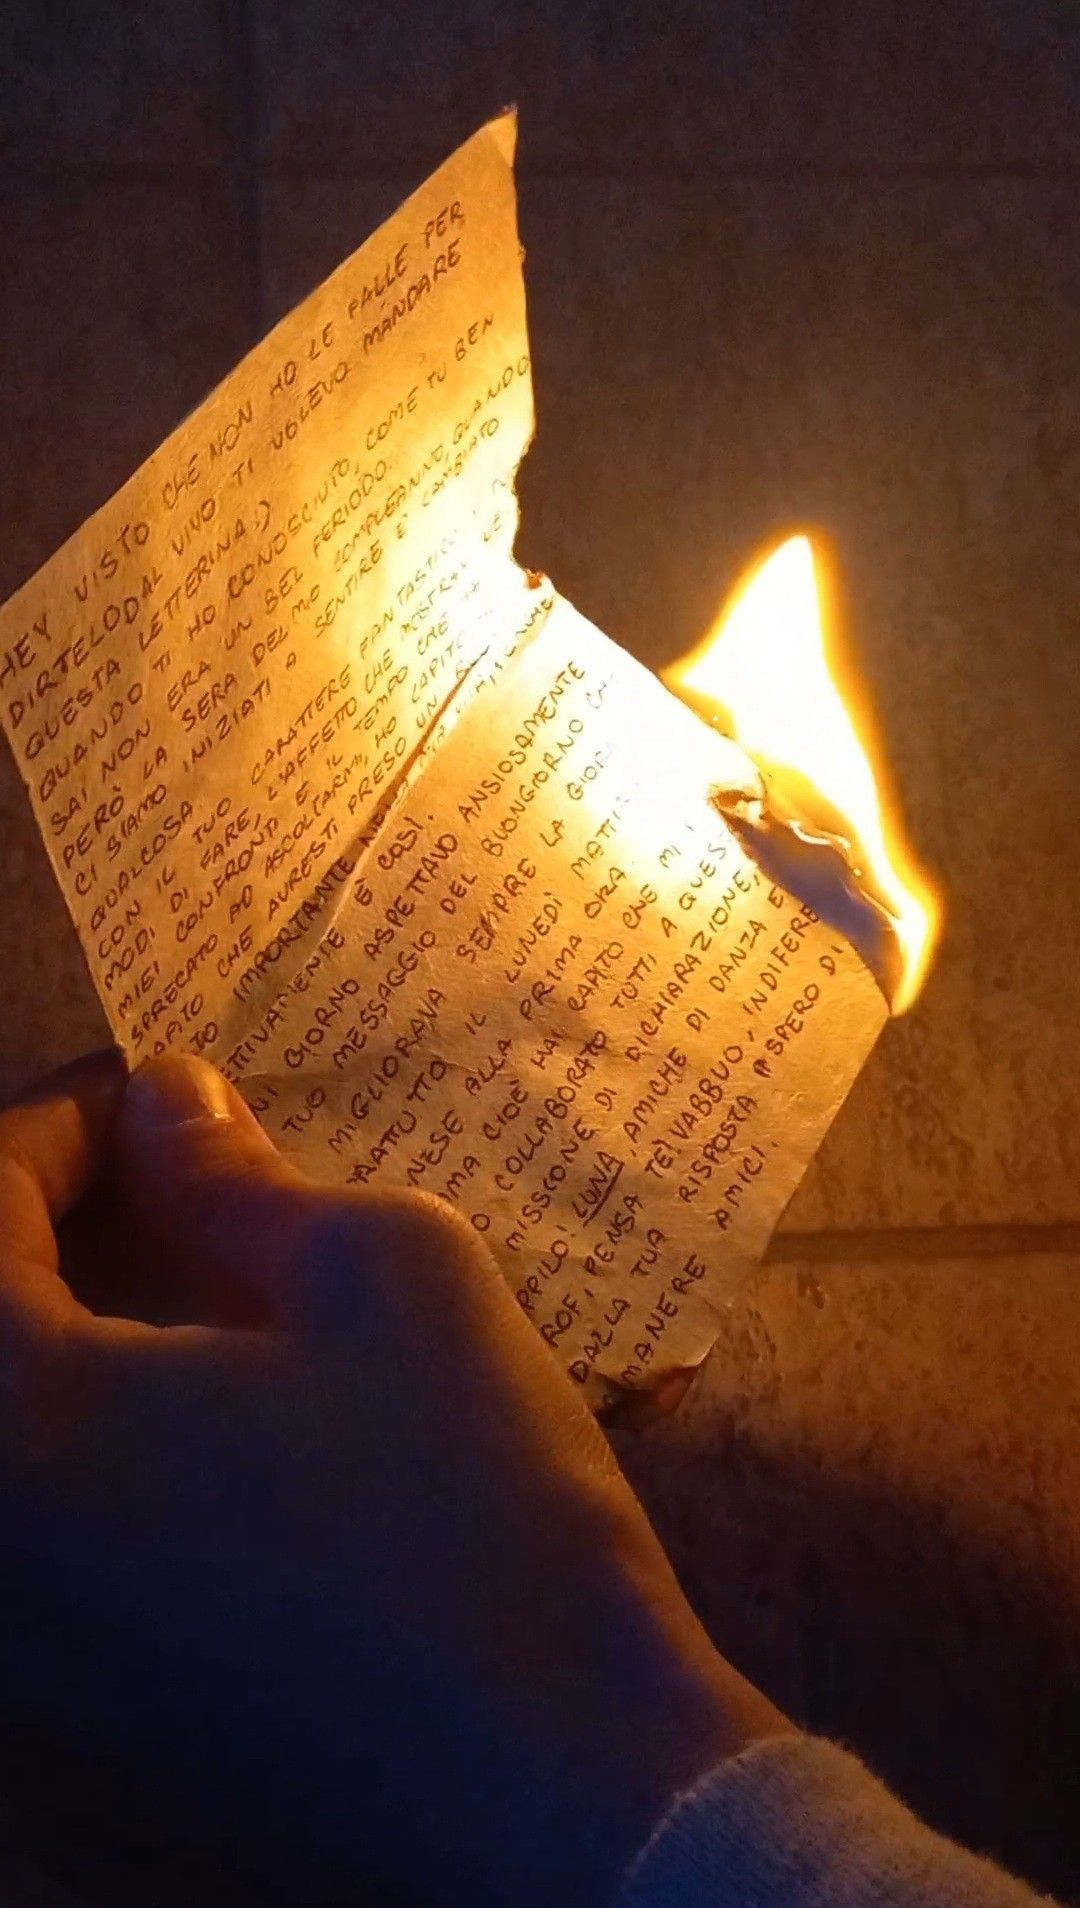 HEY VISTO CHE NON HO LE PALLE PER
DIRTELO DAL VIVO TI VOLEVO MANDARE
QUESTA LETTERINA :)
QUANDO TI HO CONOSCIUTO, COME TU BEN
SAI NON ERA UN BEL PERIODO.
PERÒ LA SERA DEL MIO COMPLEANNO, QUANDO
CI SIAMO INIZIATI A SENTIRE È CAMBIATO
QUALCOSA.
CON IL TUO CARATTERE FANTASTICO
MODI DI FARE, L'AFFETTO CHE MOSTRAI
MIEI CONFRONTI E IL TEMPO CHE HA
SPRECATO AD ASCOLTARMI, HO CAPITO
APITO CHE AVRESTI PRESO UN
TO IMPORTANTE
ETTIVAMENTE È COSÌ.
NI GIORNO ASPETTAVO ANSIOSAMENTE
TUO MESSAGGIO DEL BUONGIORNO
MIGLIORAVA SEMPRE LA GIOR
RATTUTTO IL LUNEDÌ MATTI
NESE ALLA PRIMA ORA.
OMA CIOÈ HAI CAPITO CHE MI
O COLLABORATO TUTTI, A QUES
MISSIONE DI DICHIARAZIONE,
PPILO! LUNA, AMICHE DI DANZA E
ROF, PENSA TE! VABBUO, INDIFERE
DALLA TUA RISPOSTA SPERO DI
MANERE AMICI.